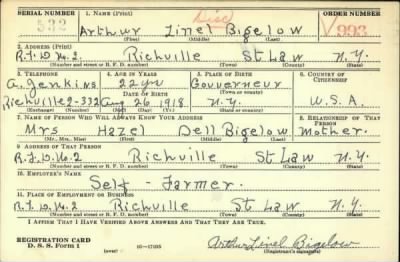 SERIAL NUMBER 1. NAME (Print) ORDER NUMBER
532 Arthur Linel Bigelow Disc V993
(First) (Middle) (Last)
2. ADDRESS (Print)
R.F.D. No. 2. Richville St Law N.Y.
(Number and street or R. F. D. number) (Town) (County) (State)
3. TELEPHONE 4. AGE IN YEARS 5. PLACE OF BIRTH 6. COUNTRY OF CITIZENSHIP
A. Jenkins 22 yrs Gouverneur
DATE OF BIRTH (Town or county)
Richville 2-332 Aug 26 1918 N.Y. U.S.A.
(Exchange) (Number) (Mo.) (Day) (Yr.) (State or country)
7. NAME OF PERSON WHO WILL ALWAYS KNOW YOUR ADDRESS 8. RELATIONSHIP OF THAT PERSON
Mrs Hazel Dell Bigelow Mother.
(Mr., Mrs., Miss) (First) (Middle) (Last)
9. ADDRESS OF THAT PERSON
R.F.D. No. 2 Richville St Law N.Y.
(Number and street or R. F. D. number) (Town) (County) (State)
10. EMPLOYER'S NAME
Self - Farmer.
11. PLACE OF EMPLOYMENT OR BUSINESS
R.F.D. No. 2 Richville St Law N.Y.
(Number and street or R. F. D. number) (Town) (County) (State)
I AFFIRM THAT I HAVE VERIFIED ABOVE ANSWERS AND THAT THEY ARE TRUE.
REGISTRATION CARD
D. S. S. Form 1 (over) 16-17105 Arthur Linel Bigelow
(Registrant's signature)